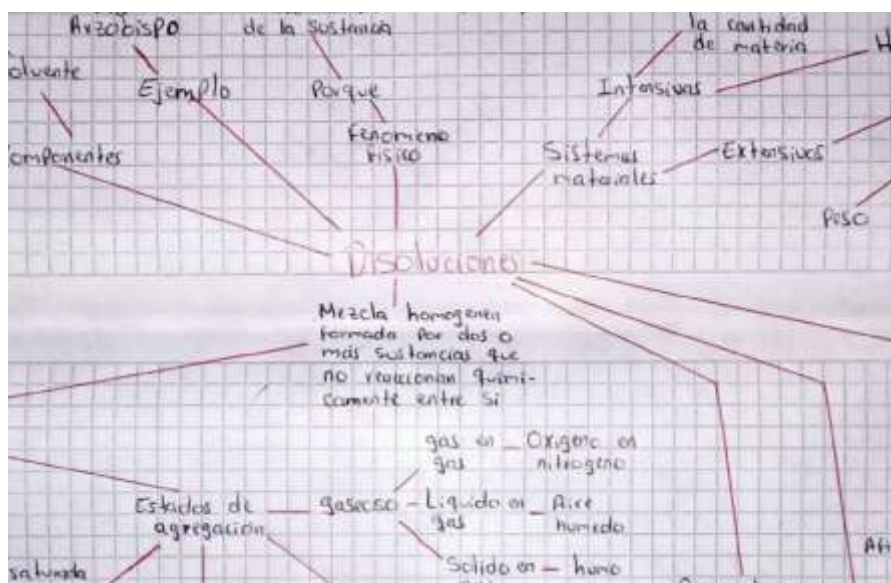 Arzobispo
de la sustancia
la cantidad
de materia
olvente
Ejemplo
Porque
Intensivas
H
Fenomeno
Fisico
omponentes
Sistemas
materiales
Extensivas
Peso
Disoluciones
Mezcla homogenea
formada por dos o
más sustancias que
no reaccionan quimi-
camente entre si
gas en
gas
Oxigeno en
nitrogeno
Estados de
agregación
gaseoso
Liquido en
gas
Aire
humedo
Solido en
humo
saturada